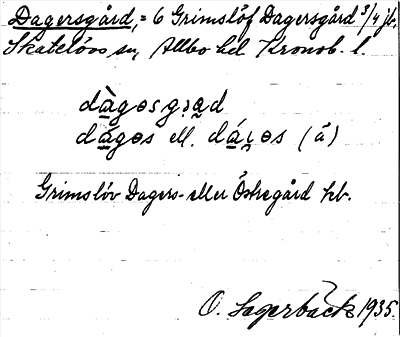 Dagersgård, = 6 Grimslöf Dagersgård 3/4 jb,
Skatelövs sn, Allbo hd Kronob. l.
dàgəsgɔ̀ad
dágəs ell. dáɩəs (á)
Grimslöv Dagers- eller Östregård kb.
O. Lagerbäck 1935.